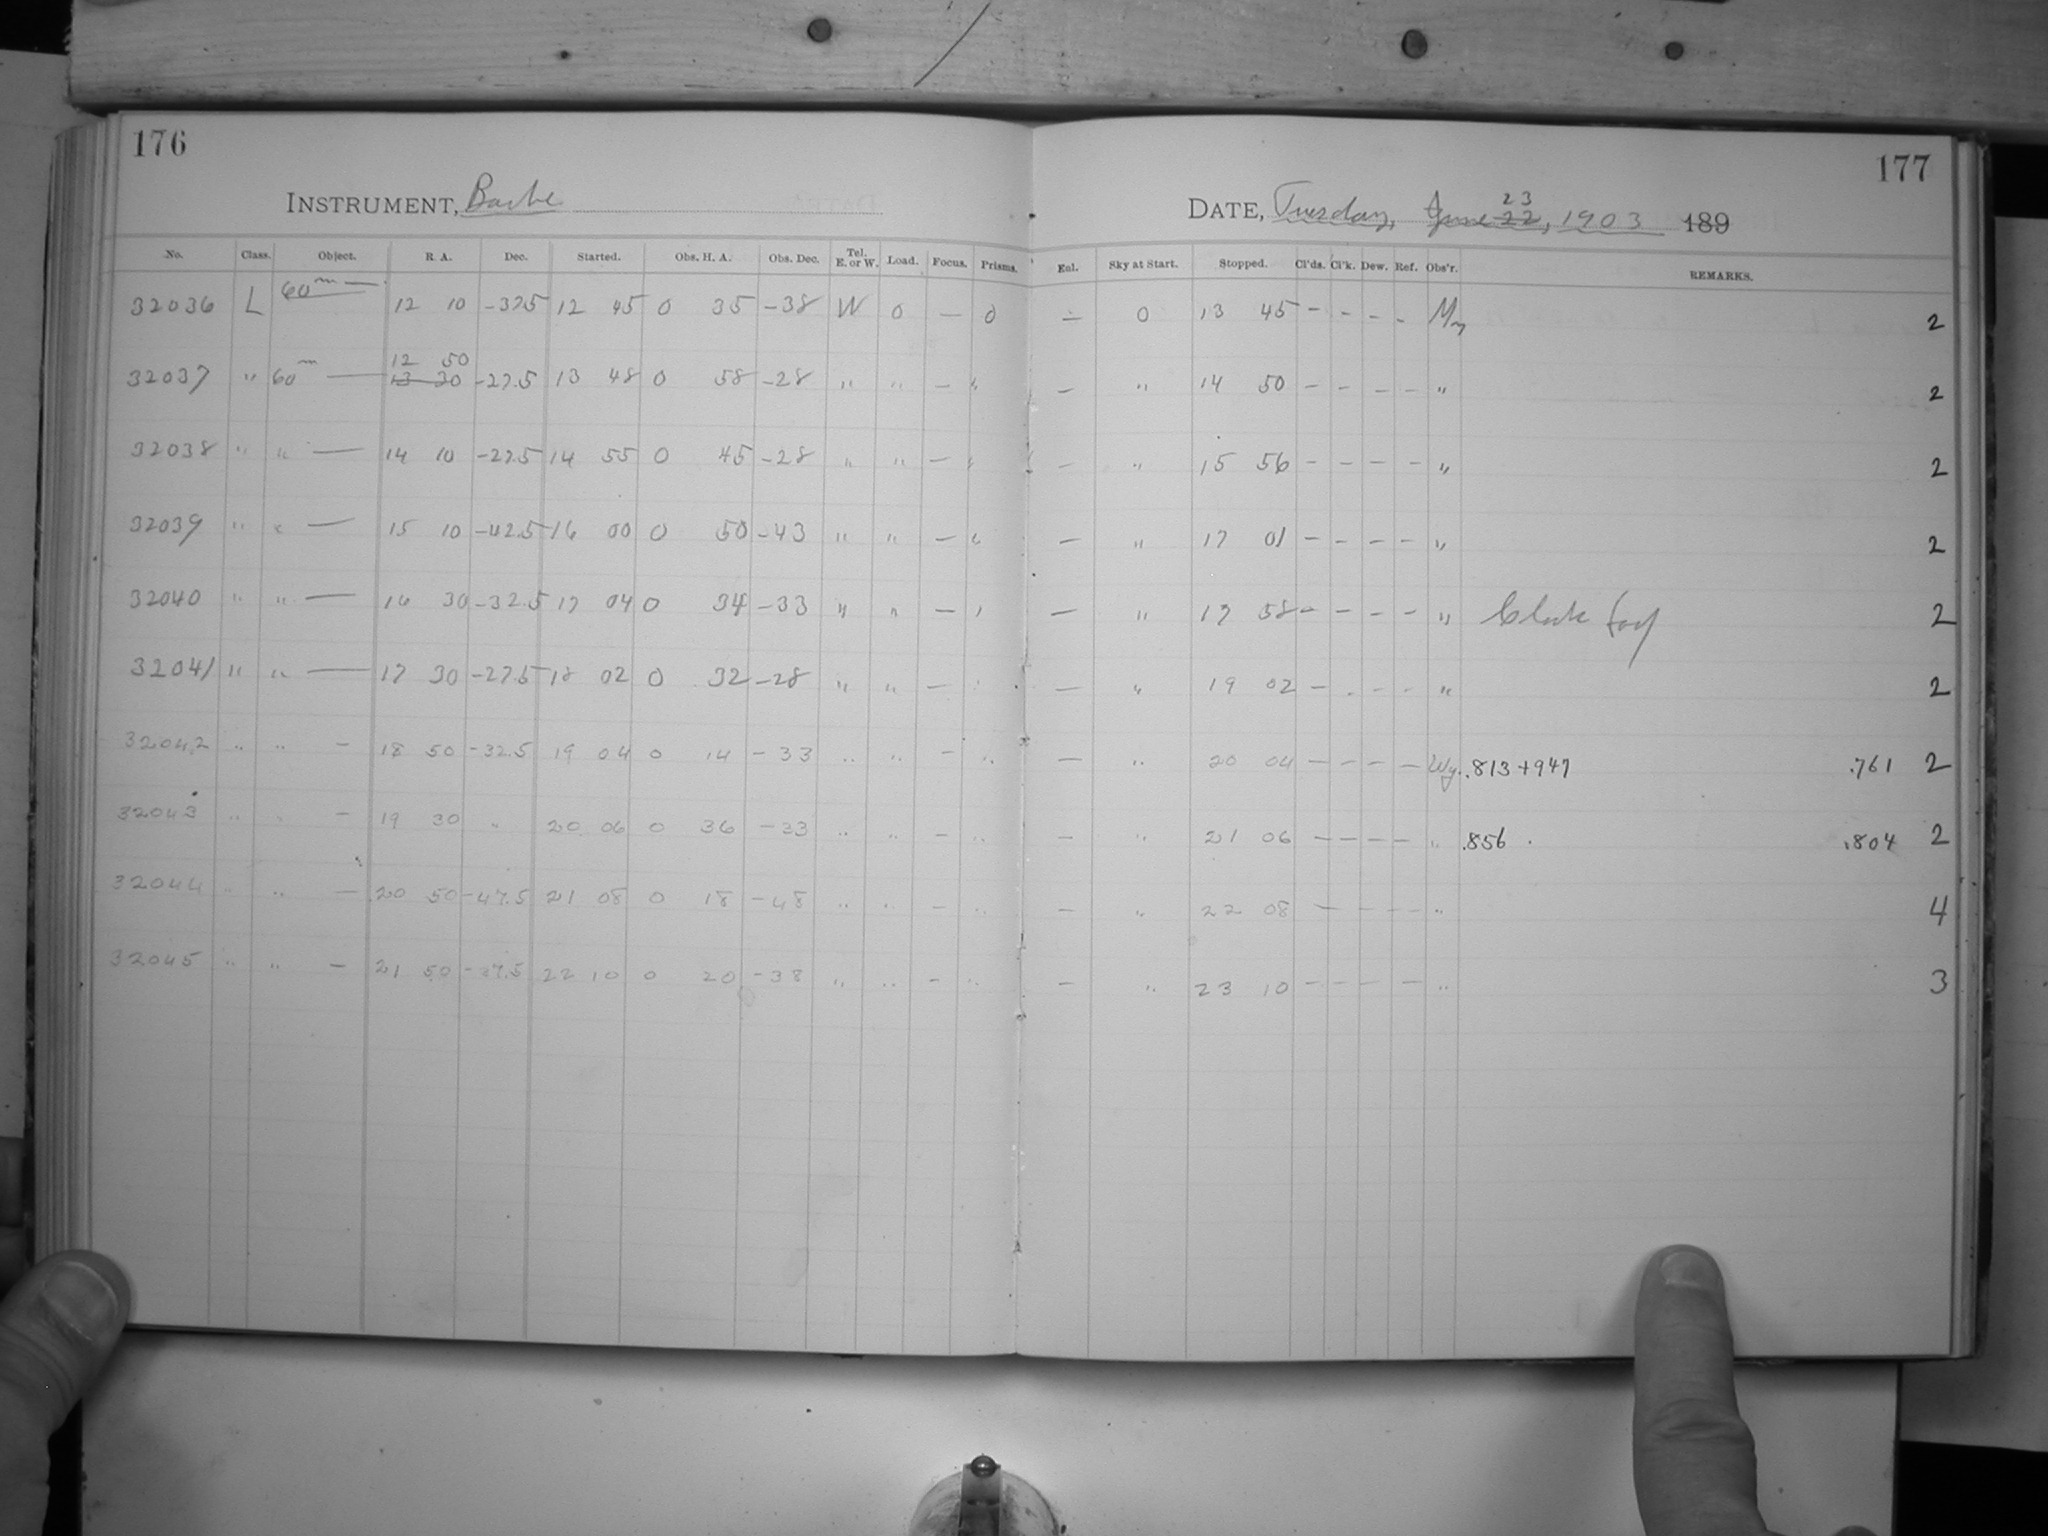 176
177
INSTRUMENT, Bache
DATE, Tuesday, June 22 23, 1903 189
No. Class. Object. R. A. Dec. Started. Obs. H. A. Obs. Dec. Tel. E. or W. Load. Focus. Prisms. Enl. Sky at Start. Stopped. Cl'ds. Cl'k. Dew. Ref. Obs'r. REMARKS.
32036 L 60m — 12 10 -37.5 12 45 0 35 -38 W 0 — 0 — 0 13 45 - - - - My 2
12 50
32037 " 60m — 13 30 -27.5 13 48 0 58 -28 " " - " — " 14 50 - - - - " 2
32038 " " — 14 10 -27.5 14 55 0 45 -28 " " — " — " 15 56 - - - - " 2
32039 " " — 15 10 -42.5 16 00 0 50 -43 " " — " — " 17 01 - - - - " 2
32040 " " — 16 30 -32.5 17 04 0 34 -33 " " — " — " 17 58 - - - - " Clock 2
32041 " " — 17 30 -27.5 18 02 0 32 -28 " " — " — " 19 02 - - - - " 2
32042 " " — 18 50 -32.5 19 04 0 14 -33 " " — " — " 20 04 - - - - Wy. .813+947 .761 2
32043 " " — 19 30 " 20 06 0 36 -33 " " — " — " 21 06 - - - - " .856 .804 2
32044 " " — 20 50 -47.5 21 08 0 18 -48 " " — " — " 22 08 - - - - " 4
32045 " " — 21 50 -37.5 22 10 0 20 -38 " " — " — " 23 10 - - - - " 3